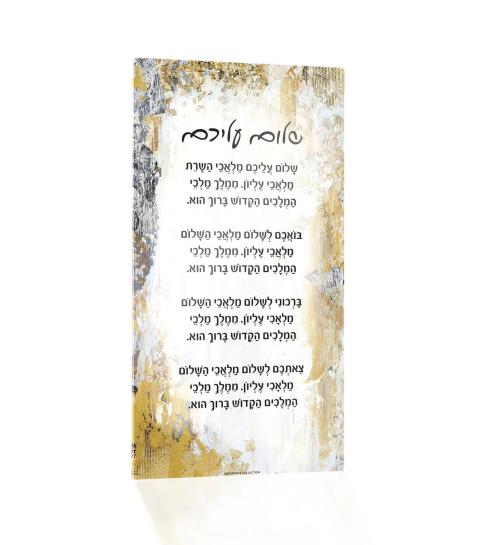 שלום עליכם
שָׁלוֹם עֲלֵיכֶם מַלְאֲכֵי הַשָּׁרֵת
מַלְאֲכֵי עֶלְיוֹן. מִמֶּלֶךְ מַלְכֵי
הַמְּלָכִים הַקָּדוֹשׁ בָּרוּךְ הוּא.
בּוֹאֲכֶם לְשָׁלוֹם מַלְאֲכֵי הַשָּׁלוֹם
מַלְאֲכֵי עֶלְיוֹן. מִמֶּלֶךְ מַלְכֵי
הַמְּלָכִים הַקָּדוֹשׁ בָּרוּךְ הוּא.
בָּרְכוּנִי לְשָׁלוֹם מַלְאֲכֵי הַשָּׁלוֹם
מַלְאֲכֵי עֶלְיוֹן. מִמֶּלֶךְ מַלְכֵי
הַמְּלָכִים הַקָּדוֹשׁ בָּרוּךְ הוּא.
צֵאתְכֶם לְשָׁלוֹם מַלְאֲכֵי הַשָּׁלוֹם
מַלְאֲכֵי עֶלְיוֹן. מִמֶּלֶךְ מַלְכֵי
הַמְּלָכִים הַקָּדוֹשׁ בָּרוּךְ הוּא.
COLLECTION